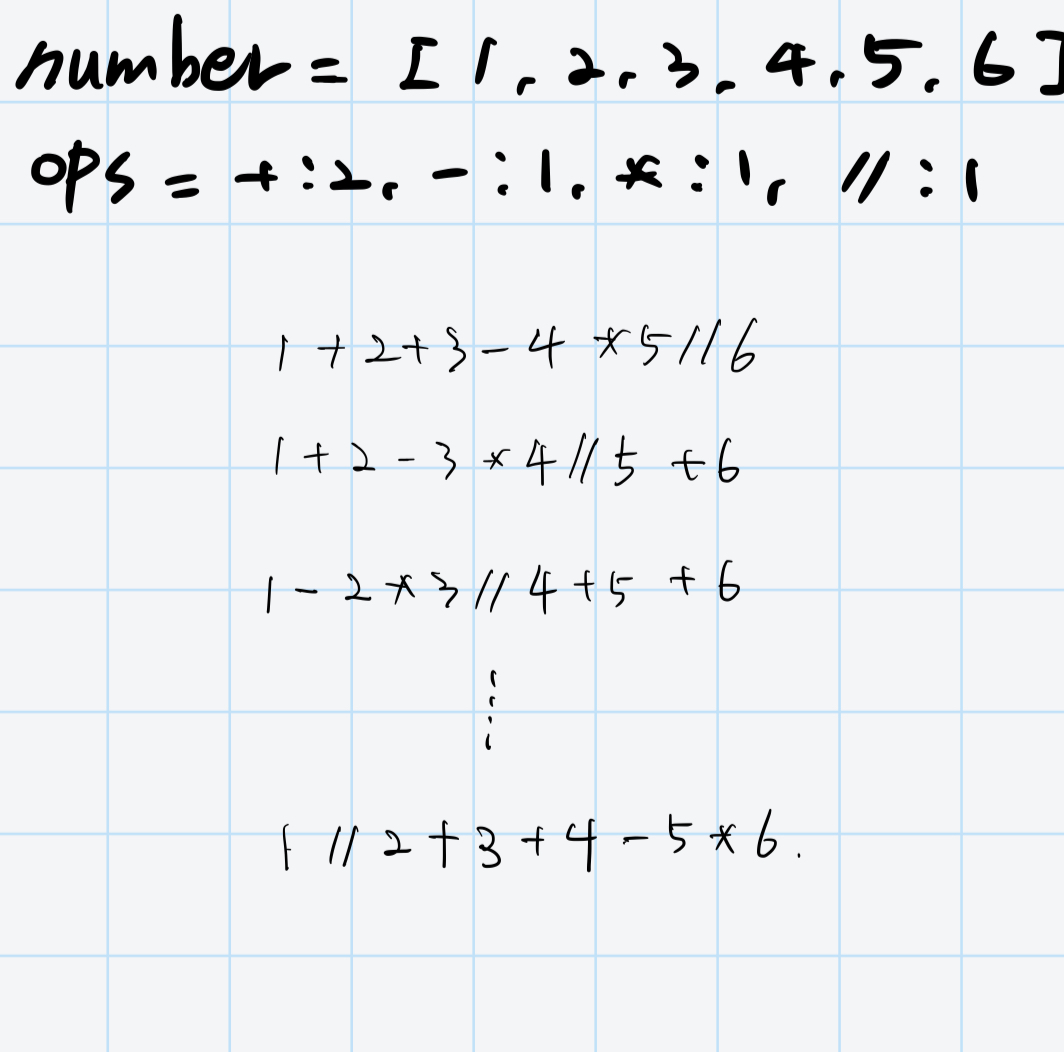 number = [1, 2, 3, 4, 5, 6]
ops = +:2, -:1, *:1, //:1
1 + 2 + 3 - 4 * 5 // 6
1 + 2 - 3 * 4 // 5 + 6
1 - 2 * 3 // 4 + 5 + 6
⋮
1 // 2 + 3 + 4 - 5 * 6.